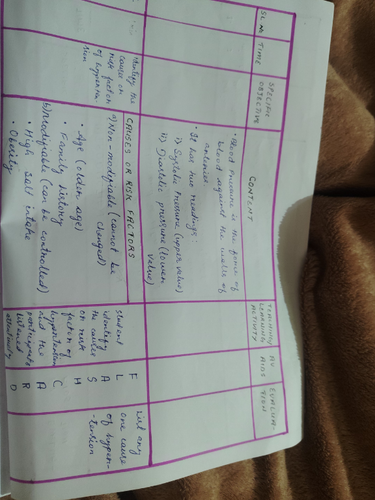 SL.No TIME SPECIFIC OBJECTIVE CONTENT TEACHING LEARNING ACTIVITY AV AIDS EVALUATION
• Blood Pressure is the force of
blood against the walls of
arteries.
• It has two readings:
i) Systolic Pressure (upper value)
ii) Diastolic pressure (lower
value)
identify the
causes or
risk factor
of hyperten
sion
CAUSES OR RISK FACTORS
a) Non-modifiable (cannot be
changed)
• Age (older age)
• Family history
b) Modifiable (can be controlled)
• High salt intake
• Obesity
student
identify
the cause
or risk
factor of
hypertension
and the
participants
listened
attentively
F
L
A
S
H
C
A
R
D
List any
one cause
of hyper
-tension